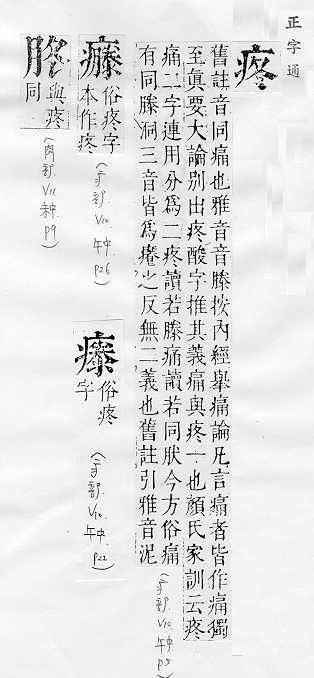 正字通
疼
舊註音同痛也雅音音縢按內經舉痛論凡言痛者皆作痛獨
至眞要大論別出疼酸字推其義痛與疼一也顏氏家訓云疼
痛二字連用分爲二疼讀若縢痛讀若同肰今方俗痛
有同縢洞三音皆爲癢之反無二義也舊註引雅音泥
(疒部. V10. 午中. P5)
俗疼字
本作疼
(疒部. V10. 午中. P26)
俗疼
字
(疒部. V10. 午中. P22)
與疼
同